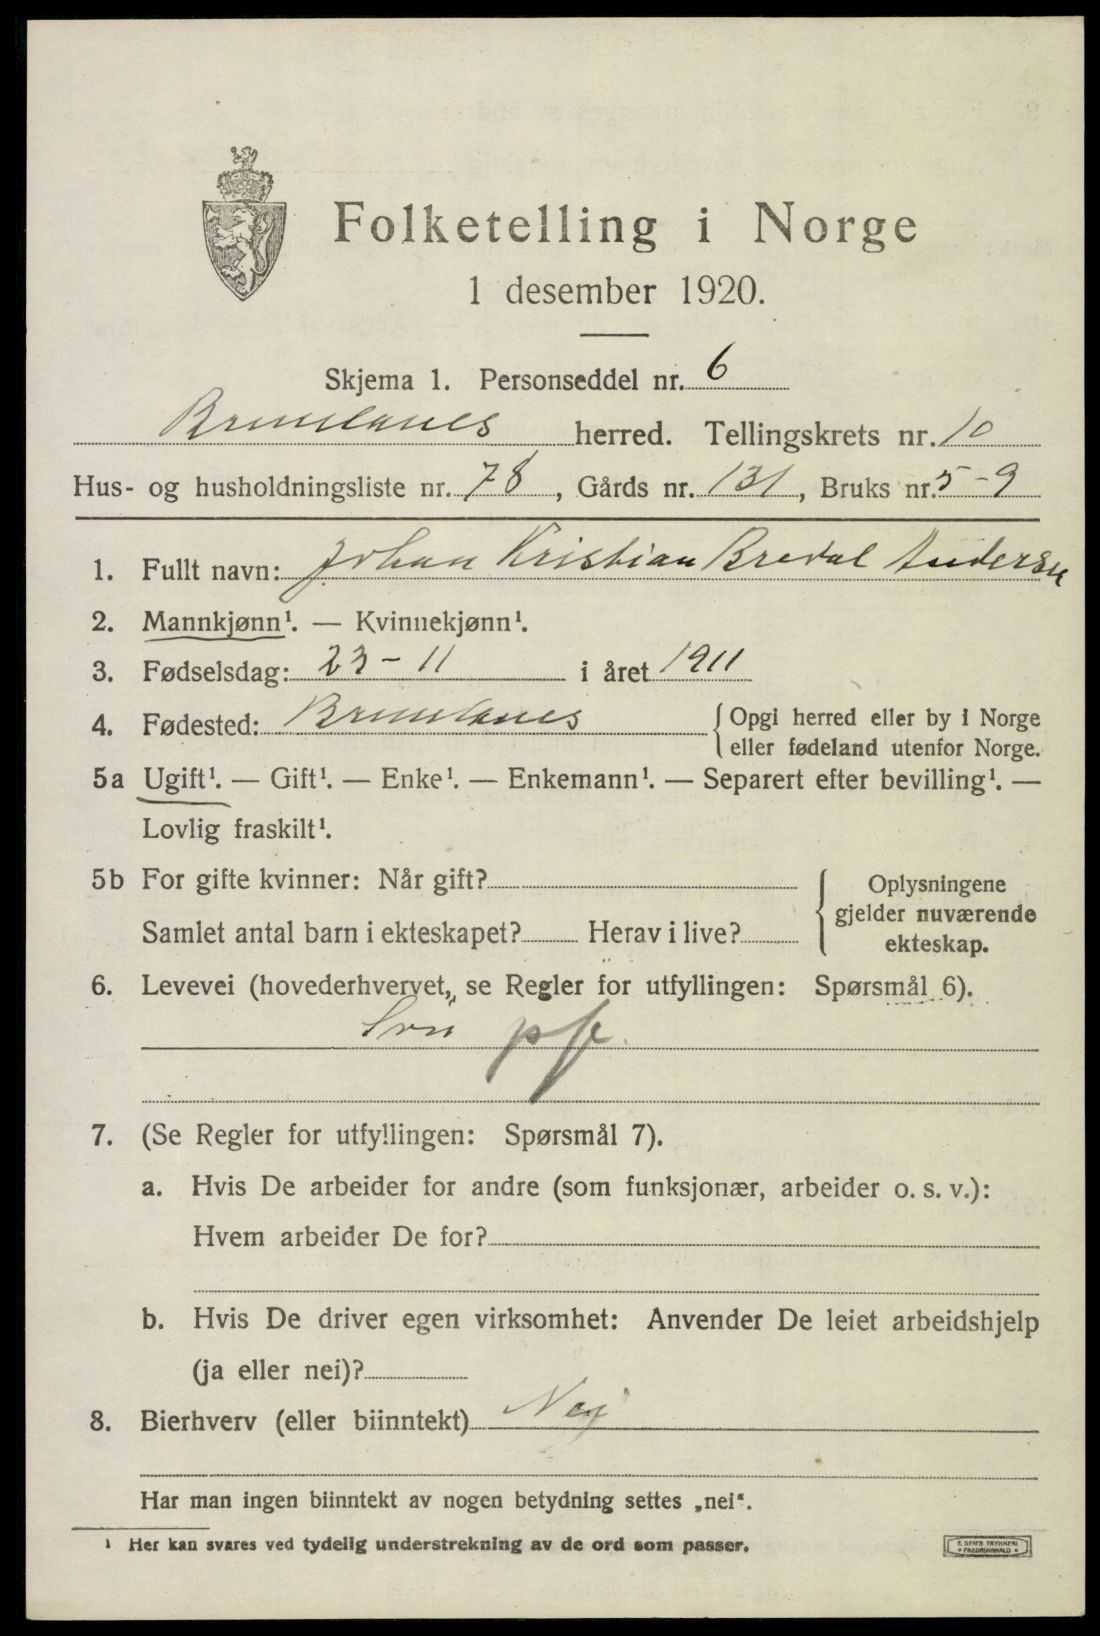 Folketelling i Norge
1 desember 1920.
Skjema 1. Personseddel nr. 6
Brunlanes herred. Tellingskrets nr. 10
Hus- og husholdningsliste nr. 78, Gårds nr. 131, Bruks nr. 5-9
1. Fullt navn: Johan Kristian Bredal Andersen
2. Mannkjønn¹. — Kvinnekjønn¹.
3. Fødselsdag: 23-11 i året 1911
4. Fødested: Brunlanes { Opgi herred eller by i Norge
eller fødeland utenfor Norge.
5a Ugift¹. — Gift¹. — Enke¹. — Enkemann¹. — Separert efter bevilling¹. —
Lovlig fraskilt¹.
5b For gifte kvinner: Når gift?
Samlet antal barn i ekteskapet? Herav i live?
{ Oplysningene
gjelder nuværende
ekteskap.
6. Levevei (hovederhvervet, se Regler for utfyllingen: Spørsmål 6).
Søn pf.
7. (Se Regler for utfyllingen: Spørsmål 7).
a. Hvis De arbeider for andre (som funksjonær, arbeider o. s. v.):
Hvem arbeider De for?
b. Hvis De driver egen virksomhet: Anvender De leiet arbeidshjelp
(ja eller nei)?
8. Bierhverv (eller biinntekt) Nej
Har man ingen biinntekt av nogen betydning settes „nei“.
¹ Her kan svares ved tydelig understrekning av de ord som passer.
E. SEM'S TRYKKERI
FREDRIKSHALD